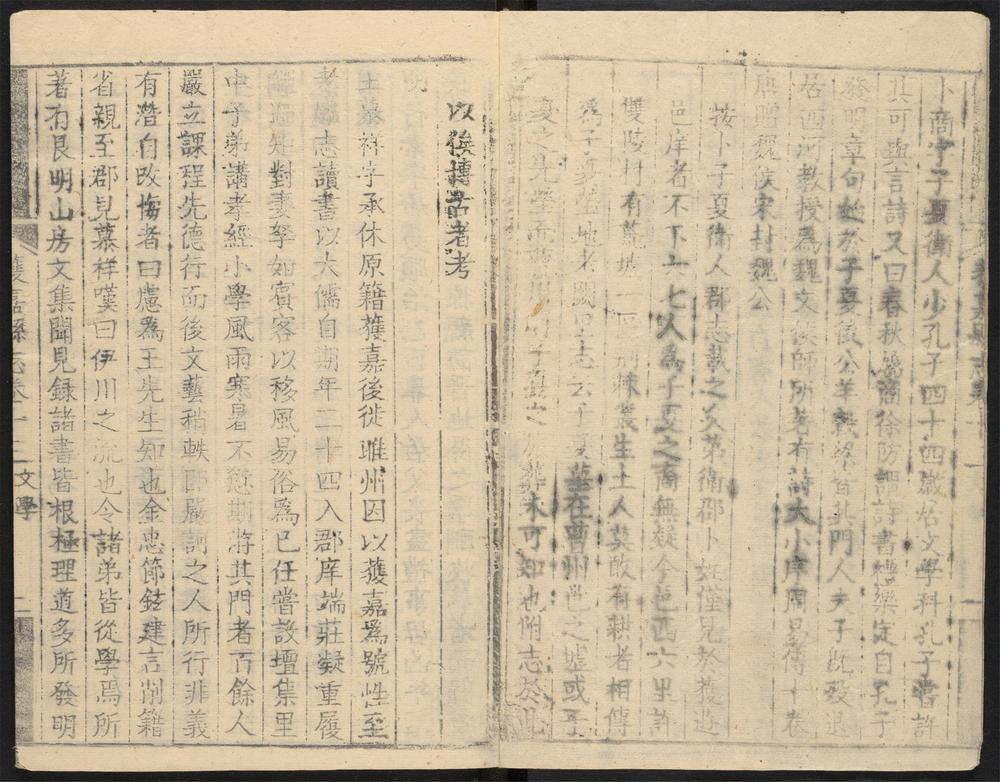 卜商字子夏衛人少孔子四十四歲右文學科孔子嘗許
其可與言詩又曰春秋屬商徐防謂詩書禮樂定自孔子
發明章句始於子夏後公羊穀梁皆其門人夫子既歿退
居西河教授為魏文侯師所著有詩大小序周易傳十卷
唐贈魏侯宋封魏公
按卜子夏衛人郡志載之久第衛郡卜姓僅見於獲邑
邑庠者不下六七人為子夏之裔無疑今邑西六里許
雙陵村有荒塚一區荊棘叢生土人莫敢有耕者相傳
為子夏墓地考闕里志云子夏墓在曹州邑之墟或子
夏之先塋
未可知也附志於此
以俟摶古者考
王慕祥字承休原籍獲嘉後徙睢州因以獲嘉為號性至
孝勵志讀書以大儒自期年二十四入郡庠端莊凝重履
對妻孥如賓客以移風易俗為已任嘗設壇集里
中子弟講孝經小學風雨寒暑不愆期游其門者百餘人
嚴立課程先德行而後文藝稍軼即嚴訓之人所行非義
有潛自改悔者曰慮為王先生知也金忠節鉉建言削籍
省親至郡見慕祥嘆曰伊川之流也令諸弟皆從學焉所
著有良明山房文集聞見録諸書皆根極理道多所發明
獲嘉縣志卷十二 文學 二